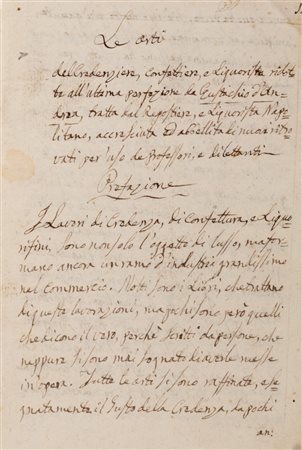 Le arti
del Credenziere, Confettiere, e Liquorista ridot
te all'ultima perfezione da Eustachio d'An
drea, tratta dal Repostiere, e Liquorista Nap
litano, accresciuta ed abbellita di nuovi ritro
vati per l'uso de' Professori, e dilettanti
Prefazione
I Lavori di Credenza, di Confettura, e Liquo
rifini, sono non solo l'oggetto di lusso, ma for
mano ancora un ramo d'industria grandissimo
nel commercio. Molti sono i Libri, che trattano
di queste lavorazioni, ma pochi sono però quelli
che dicono il vero, perchè scritti da persone, che
neppure si sono mai sognato di averle messe
in opera. Tutte le arti si sono raffinate, e se
gnatamente il Gusto della Credenza, da pochi
an: